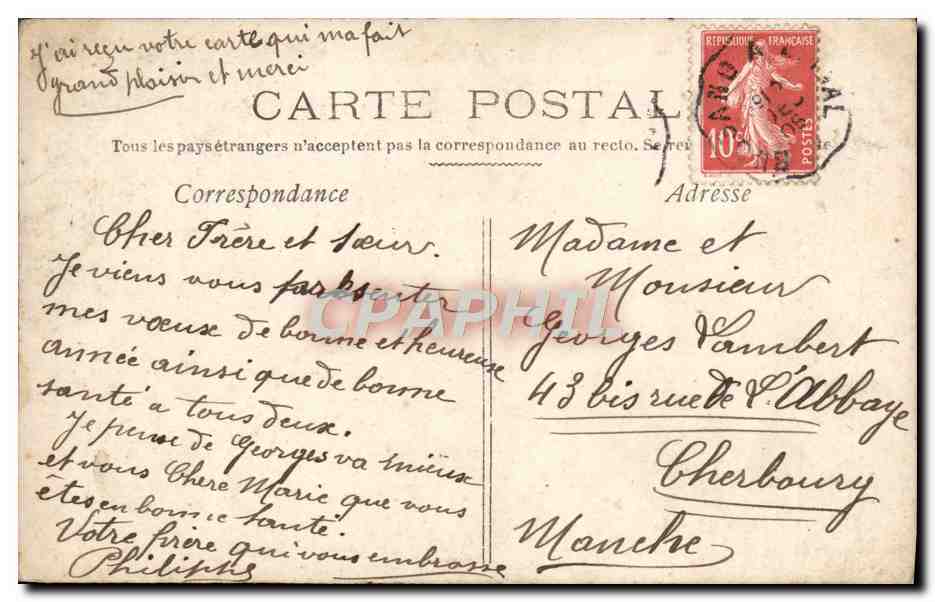 J'ai reçu votre carte qui ma fait
grand plaisir et merci
RÉPUBLIQUE FRANÇAISE
10c
POSTES
CARTE POSTALE
Tous les pays étrangers n'acceptent pas la correspondance au recto.
Correspondance
Cher Frère et Sœur.
Je viens vous
mes vœux de bonne et heureuse
année ainsi que de bonne
santé a tous deux.
Je pense de Georges va mieux
et vous Chere Marie que vous
êtes en bonne santé.
Votre frère qui vous embrasse
Philippe
Adresse
Madame et
Monsieur
Georges Lambert
43 bis rue de L'Abbaye
Cherbourg
Manche
CPAPHIL